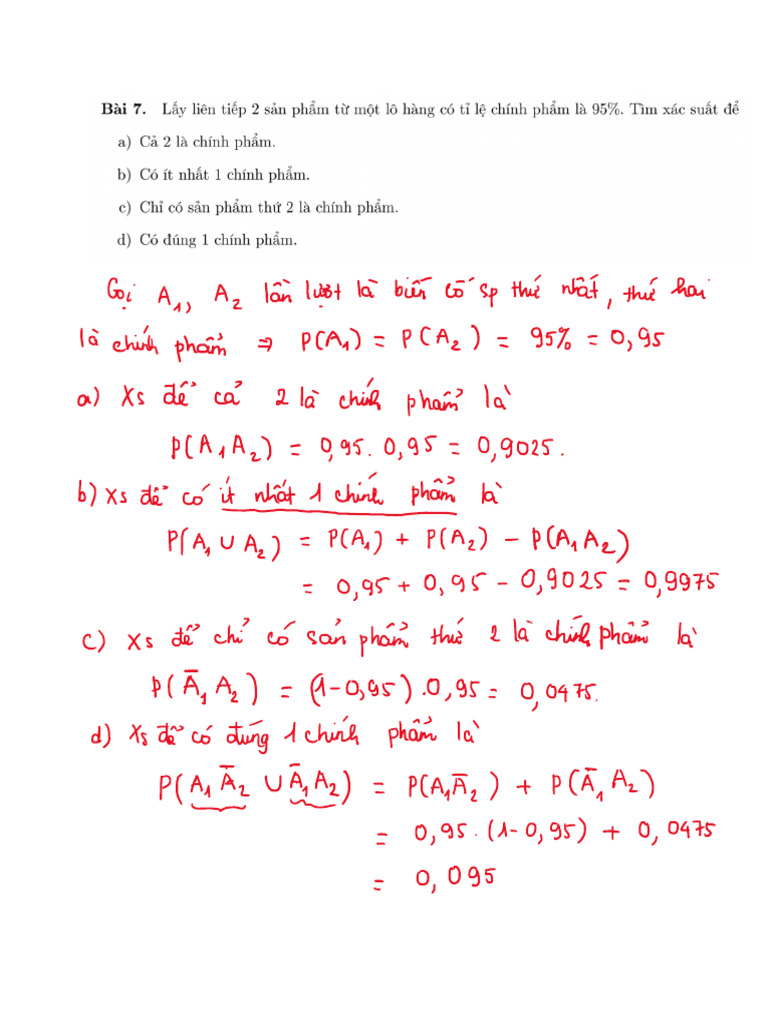 Bài 7. Lấy liên tiếp 2 sản phẩm từ một lô hàng có tỉ lệ chính phẩm là 95%. Tìm xác suất để
a) Cả 2 là chính phẩm.
b) Có ít nhất 1 chính phẩm.
c) Chỉ có sản phẩm thứ 2 là chính phẩm.
d) Có đúng 1 chính phẩm.
Gọi A₁, A₂ lần lượt là biến cố sp thứ nhất, thứ hai
là chính phẩm ⇒ P(A₁) = P(A₂) = 95% = 0,95
a) Xs để cả 2 là chính phẩm là
P(A₁A₂) = 0,95. 0,95 = 0,9025.
b) Xs để có ít nhất 1 chính phẩm là
P(A₁ ∪ A₂) = P(A₁) + P(A₂) - P(A₁A₂)
= 0,95 + 0,95 - 0,9025 = 0,9975
c) Xs để chỉ có sản phẩm thứ 2 là chính phẩm là
P(Ā₁A₂) = (1-0,95).0,95 = 0,0475.
d) Xs để có đúng 1 chính phẩm là
P(A₁Ā₂ ∪ Ā₁A₂) = P(A₁Ā₂) + P(Ā₁A₂)
= 0,95.(1-0,95) + 0,0475
= 0,095